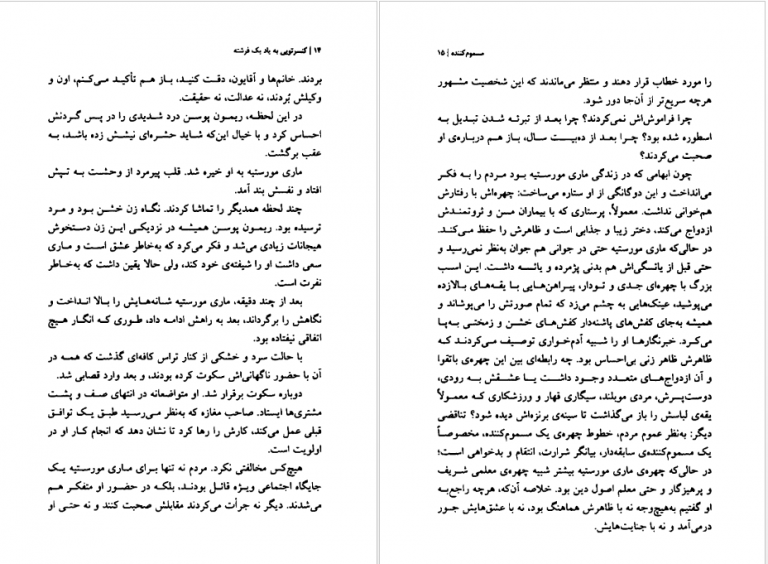 ۱۴ | کنسرتویی به یاد یک فرشته
بردند. خانم‌ها و آقایون، دقت کنید، باز هم تأکید می‌کنم، اون و
وکیلش بُردند، نه عدالت، نه حقیقت.
در این لحظه، ریمون پوسن درد شدیدی را در پس گردنش
احساس کرد و با خیال این‌که شاید حشره‌ای نیشش زده باشد، به
عقب برگشت.
ماری مورستیه به او خیره شد. قلب پیرمرد از وحشت به تپش
افتاد و نفسش بند آمد.
چند لحظه همدیگر را تماشا کردند. نگاه زن خشن بود و مرد
ترسیده بود. ریمون پوسن همیشه در نزدیکی این زن دستخوش
هیجانات زیادی می‌شد و فکر می‌کرد که به‌خاطر عشق است و ماری
سعی داشت او را شیفته‌ی خود کند، ولی حالا یقین داشت که به‌خاطر
نفرت است.
بعد از چند دقیقه، ماری مورستیه شانه‌هایش را بالا انداخت و
نگاهش را برگرداند، بعد به راهش ادامه داد، طوری که انگار هیچ
اتفاقی نیفتاده بود.
با حالت سرد و خشکی از کنار تراس کافه‌ای گذشت که همه در
آن با حضور ناگهانی‌اش سکوت کرده بودند، و بعد وارد قصابی شد.
دوباره سکوت برقرار شد. او متواضعانه در انتهای صف و پشت
مشتری‌ها ایستاد. صاحب مغازه که به‌نظر می‌رسید طبق یک توافق
قبلی عمل می‌کند، کارش را رها کرد تا نشان دهد که انجام کار او در
اولویت است.
هیچ‌کس مخالفتی نکرد. مردم نه تنها برای ماری مورستیه یک
جایگاه اجتماعی ویژه قائل بودند، بلکه در حضور او متفکر هم
می‌شدند. دیگر نه جرأت می‌کردند مقابلش صحبت کنند و نه حتی او
مسموم‌کننده | ۱۵
را مورد خطاب قرار دهند و منتظر می‌ماندند که این شخصیت مشهور
هرچه سریع‌تر از آن‌جا دور شود.
چرا فراموش‌اش نمی‌کردند؟ چرا بعد از تبرئه شدن تبدیل به
اسطوره شده بود؟ چرا بعد از ده‌بیست سال، باز هم درباره‌ی او
صحبت می‌کردند؟
چون ابهامی که در زندگی ماری مورستیه بود مردم را به فکر
می‌انداخت و این دوگانگی از او ستاره می‌ساخت: چهره‌اش با رفتارش
هم‌خوانی نداشت. معمولاً، پرستاری که با بیماران مسن و ثروتمندش
ازدواج می‌کند، دختر زیبا و جذابی است و ظاهرش را حفظ می‌کند.
در حالی‌که ماری مورستیه حتی در جوانی هم جوان به‌نظر نمی‌رسید و
حتی قبل از یائسگی‌اش هم بدنی پژمرده و یائسه داشت. این اسب
بزرگ با چهره‌ای جدی و تودار، پیراهن‌هایی با یقه‌های بالازده
می‌پوشید، عینک‌هایی به چشم می‌زد که تمام صورتش را می‌پوشاند و
همیشه به‌جای کفش‌های پاشنه‌دار کفش‌های خشن و زمختی به‌پا
می‌کرد. خبرنگارها او را شبیه آدم‌خواری توصیف می‌کردند که
ظاهرش ظاهر زنی بی‌احساس بود. چه رابطه‌ای بین این چهره‌ی باتقوا
و آن ازدواج‌های متعدد وجود داشت یا عشقش به رودی،
دوست‌پسرش، مردی موبلند، سیگاری قهار و ورزشکاری که معمولاً
یقه‌ی لباسش را باز می‌گذاشت تا سینه‌ی برنزه‌اش دیده شود؟ تناقضی
دیگر: به‌نظر عموم مردم، خطوط چهره‌ی یک مسموم‌کننده، مخصوصاً
یک مسموم‌کننده‌ی سابقه‌دار، بیانگر شرارت، انتقام و بدخواهی است؛
در حالی‌که چهره‌ی ماری مورستیه بیشتر شبیه چهره‌ی معلمی شریف
و پرهیزگار و حتی معلم اصول دین بود. خلاصه آن‌که، هرچه راجع‌به
او گفتیم به‌هیچ‌وجه نه با ظاهرش هماهنگ بود، نه با عشق‌هایش جور
درمی‌آمد و نه با جنایت‌هایش.